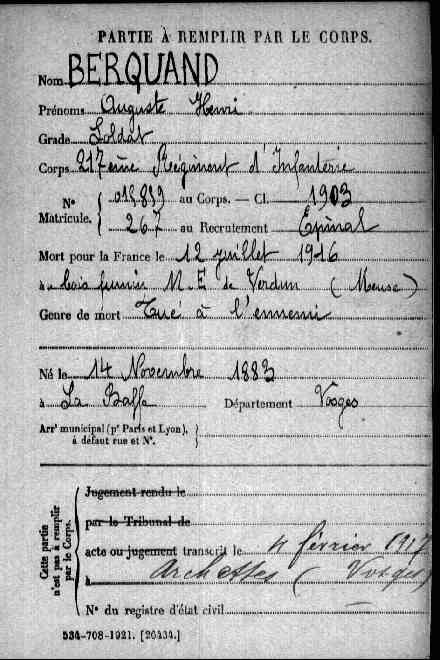 PARTIE À REMPLIR PAR LE CORPS.
Nom BERQUAND
Prénoms Auguste Henri
Grade Soldat
Corps 217ème Régiment d'Infanterie
N° Matricule. { 015889 au Corps. — Cl. 1903
267 au Recrutement Epinal
Mort pour la France le 12 juillet 1916
à bois fumin N.E de Verdun (Meuse)
Genre de mort Tué à l'ennemi
Né le 14 Novembre 1883
à La Baffe Département Vosges
Arr¹ municipal (pʳ Paris et Lyon), à défaut rue et N°. }
Cette partie n'est pas à remplir par le Corps.
Jugement rendu le
par le Tribunal de
acte ou jugement transcrit le 4 février 1917
à Archettes (Vosges)
N° du registre d'état civil
534-708-1921. [26434.]